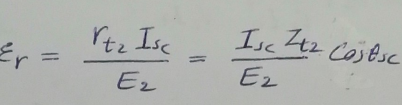 εr = rt2 Isc / E2 = Isc Zt2 / E2 Cosθsc